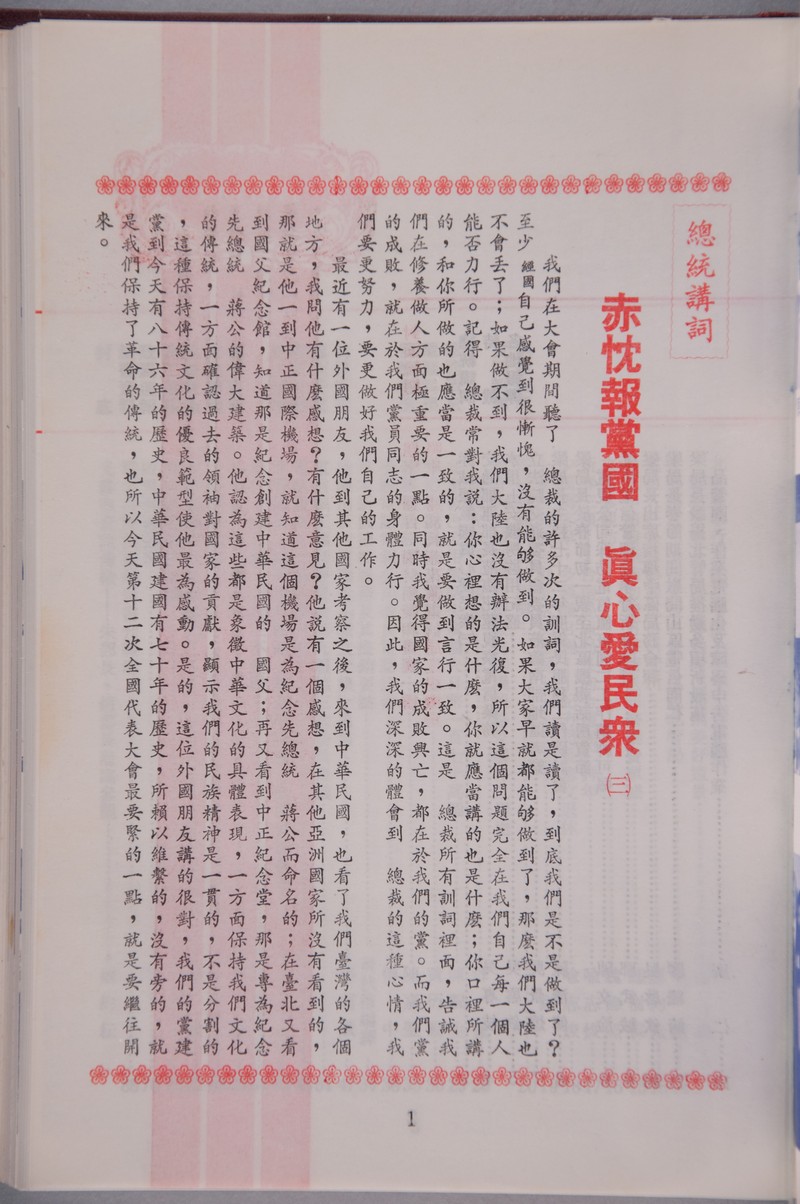 總統講詞
赤忱報黨國　眞心愛民衆㈢
我們在大會期間聽了　總裁的許多次的訓詞，我們讀是讀了，到底我們是不是做到了？
至少經國自己感覺到很慚愧，沒有能够做到。如果大家早就都能够做到了，那麼我們大陸也
不會丟了；如果做不到，我們大陸也沒有辦法光復，所以這個問題完全在我們自己每一個人
能否力行。記得　總裁常對我說：你心裡想的是什麼，你就應當講的也是什麼；你口裡所講
的，和你所做的也應當是一致的，就是要做到言行一致。這是　總裁所有訓詞裡面，告誡我
們在修養做人方面極重要的一點。同時我覺得國家的成敗興亡，都在於我們的黨。而我們黨
的成敗，就在於我們黨員同志的身體力行。因此，我們深深的體會到　總裁的這種心情，我
們要更努力，要更做好我們自己的工作。
最近有一位外國朋友，他到其他國家考察之後，來到中華民國，也看了我們臺灣的各個
地方，我問他有什麼感想？有什麼意見？他說有一個感想，在其他亞洲國家所沒有看到的，
那就是他一到中正國際機場，就知道這個機場是為紀念先總統　蔣公而命名的；在臺北又看
到國父紀念館，知道那是紀念創建中華民國的　國父；再又看到中正紀念堂，那是專為紀念
先總統　蔣公的偉大建築。他認為這些都是象徵中華文化的具體表現，一方面保持我們文化
的傳統，一方面確認過去的領袖對國家的貢獻，顯示我們的民族精神是一貫的，不是分割的
，這種保持傳統文化的優良範型使他最為感動。是的，這位外國朋友講的很對，我們的黨建
黨到今天有八十六年的歷史，中華民國建國有七十年的歷史，所賴以維繫的，沒有旁的，就
是我們保持了革命的傳統，也所以今天第十二次全國代表大會最要緊的一點，就是要繼往開
來。
1